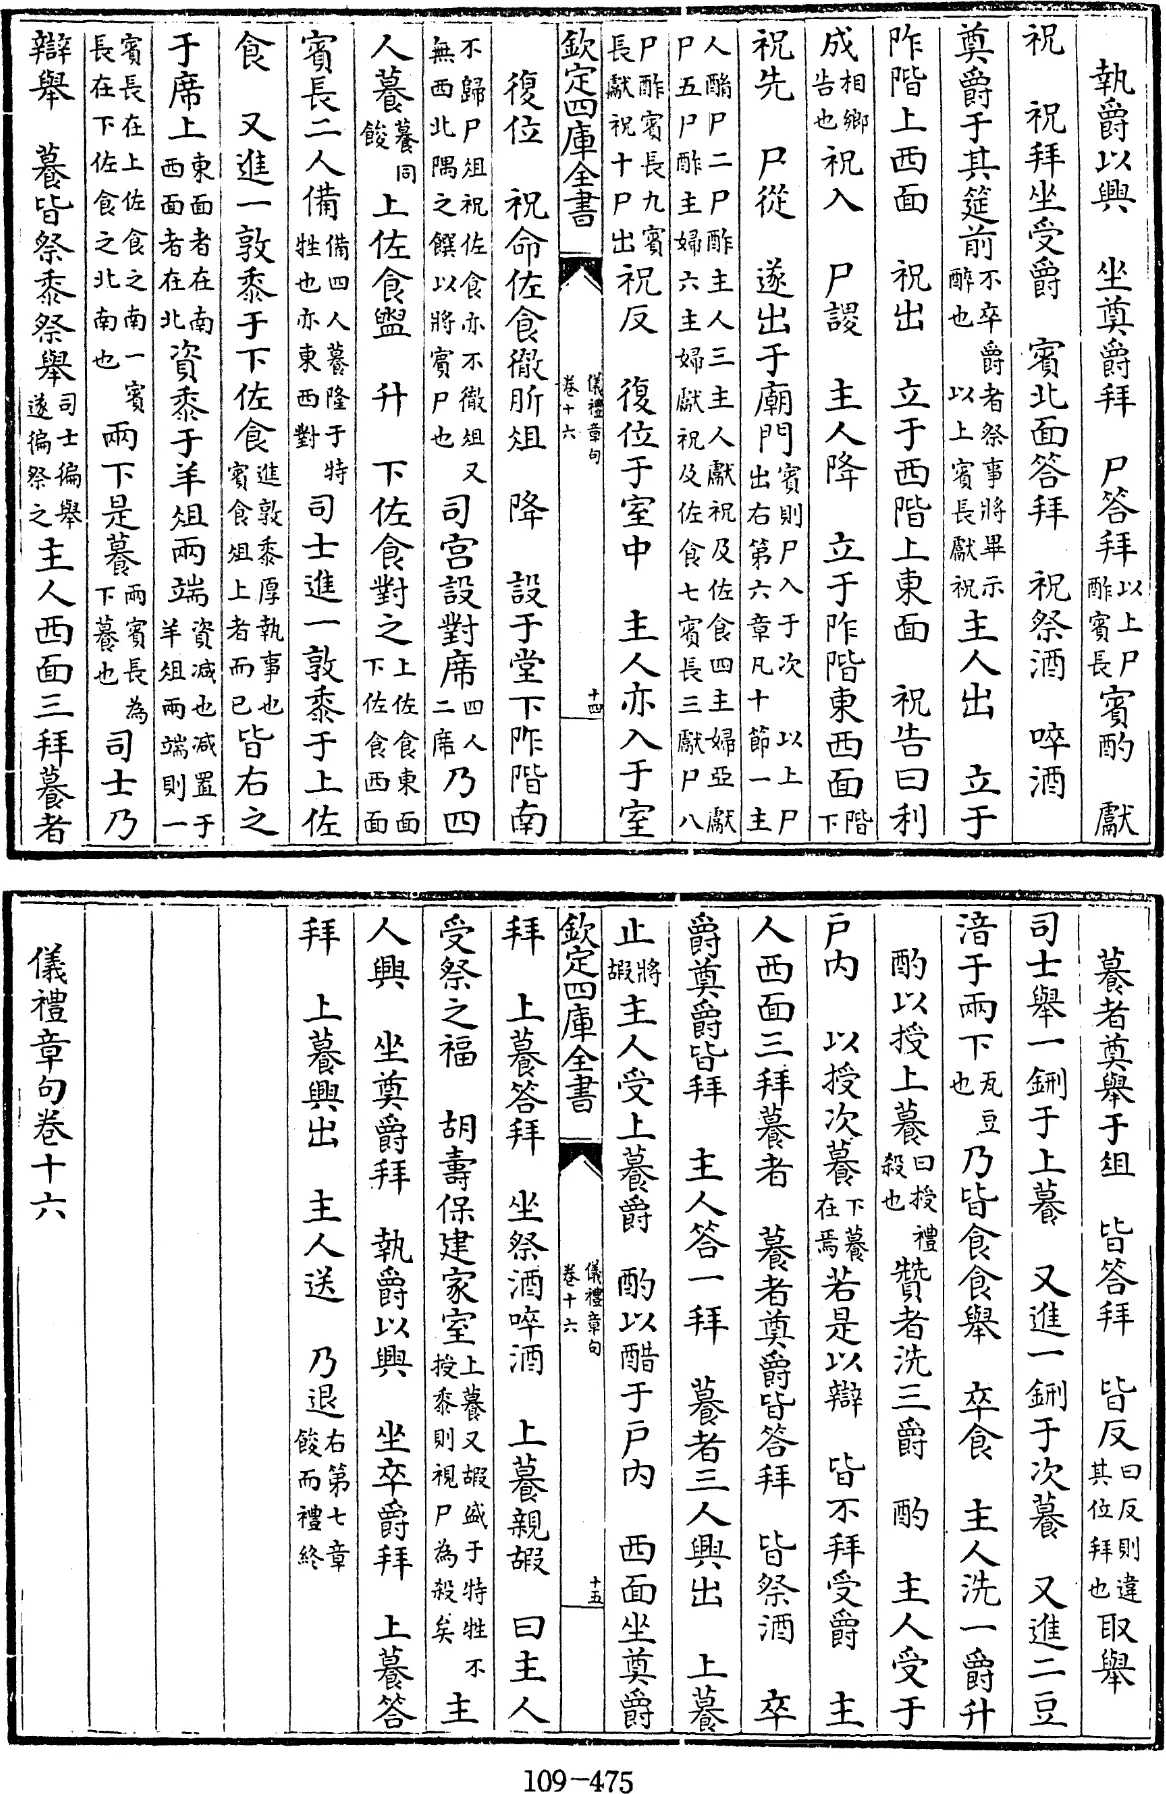 執爵以興　坐奠爵拜　尸答拜以上尸酢賓長賓酌　獻
祝　祝拜坐受爵　賓北面答拜　祝祭酒　啐酒
奠爵于其筵前不卒爵者祭事將畢示醉也　以上賓長獻祝主人出　立于
阼階上西面　祝出　立于西階上東面　祝告曰利
成相鄉告也祝入　尸謖　主人降　立于阼階東西面階下
祝先　尸從　遂出于廟門賓則尸入于次　出右第六章凡十節　以上尸一主
人酳尸二尸酢主人三主人獻祝及佐食四主婦亞獻尸五尸酢主婦六主婦獻祝及佐食七賓長三獻尸八
尸酢賓長九賓長獻祝十尸出祝反　復位于室中　主人亦入于室
欽定四庫全書　儀禮章句卷十六　十四
復位　祝命佐食徹肵俎　降　設于堂下阼階南
不歸尸俎祝佐食亦不徹俎又無西北隅之饌以將賓尸也司宮設對席四人二席乃四
人䬸䬸同餕上佐食盥　升　下佐食對之上佐食東面下佐食西面
賓長二人備備四人䬸隆于特牲也亦東西對司士進一敦黍于上佐
食　又進一敦黍于下佐食進敦黍厚執事也賓食俎上者而已皆右之
于席上東面者在南西面者在北資黍于羊俎兩端資減也減置于羊俎兩端則一
賓長在上佐食之南一賓長在下佐食之北南也兩下是䬸兩賓長為下䬸也司士乃
辯舉　䬸皆祭黍祭舉司士徧舉遂徧祭之主人西面三拜䬸者
䬸者奠舉于俎　皆答拜　皆反曰反則違其位拜也取舉
司士舉一鉶于上䬸　又進一鉶于次䬸　又進二豆
湆于兩下瓦豆也乃皆食食舉　卒食　主人洗一爵升
酌以授上䬸曰授禮殺也贊者洗三爵　酌　主人受于
戶內　以授次䬸下䬸在焉若是以辯　皆不拜受爵　主
人西面三拜䬸者　䬸者奠爵皆答拜　皆祭酒　卒
爵奠爵皆拜　主人答一拜　䬸者三人興出　上䬸
止將嘏主人受上䬸爵　酌以醋于戶內　西面坐奠爵
欽定四庫全書　儀禮章句卷十六　十五
拜　上䬸答拜　坐祭酒啐酒　上䬸親嘏　曰主人
受祭之福　胡壽保建家室上䬸又嘏盛于特牲不授黍則視尸為殺矣主
人興　坐奠爵拜　執爵以興　坐卒爵拜　上䬸答
拜　上䬸興出　主人送　乃退右第七章餕而禮終
儀禮章句卷十六
109-475